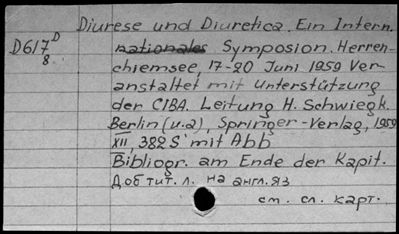 Diurese und Diuretica. Ein Intern.
D617 D
8
nationales Symposion. Herren-
chiemsee, 17-20 Juni 1959 Ver-
anstaltet mit Unterstützung
der CIBA. Leitung H. Schwiegk.
Berlin (u.a), Springer-Verlag, 1959
XII, 382 S mit Abb
Bibliogr. am Ende der Kapit.
Доб тит. л. на англ. яз
см. сл. карт.